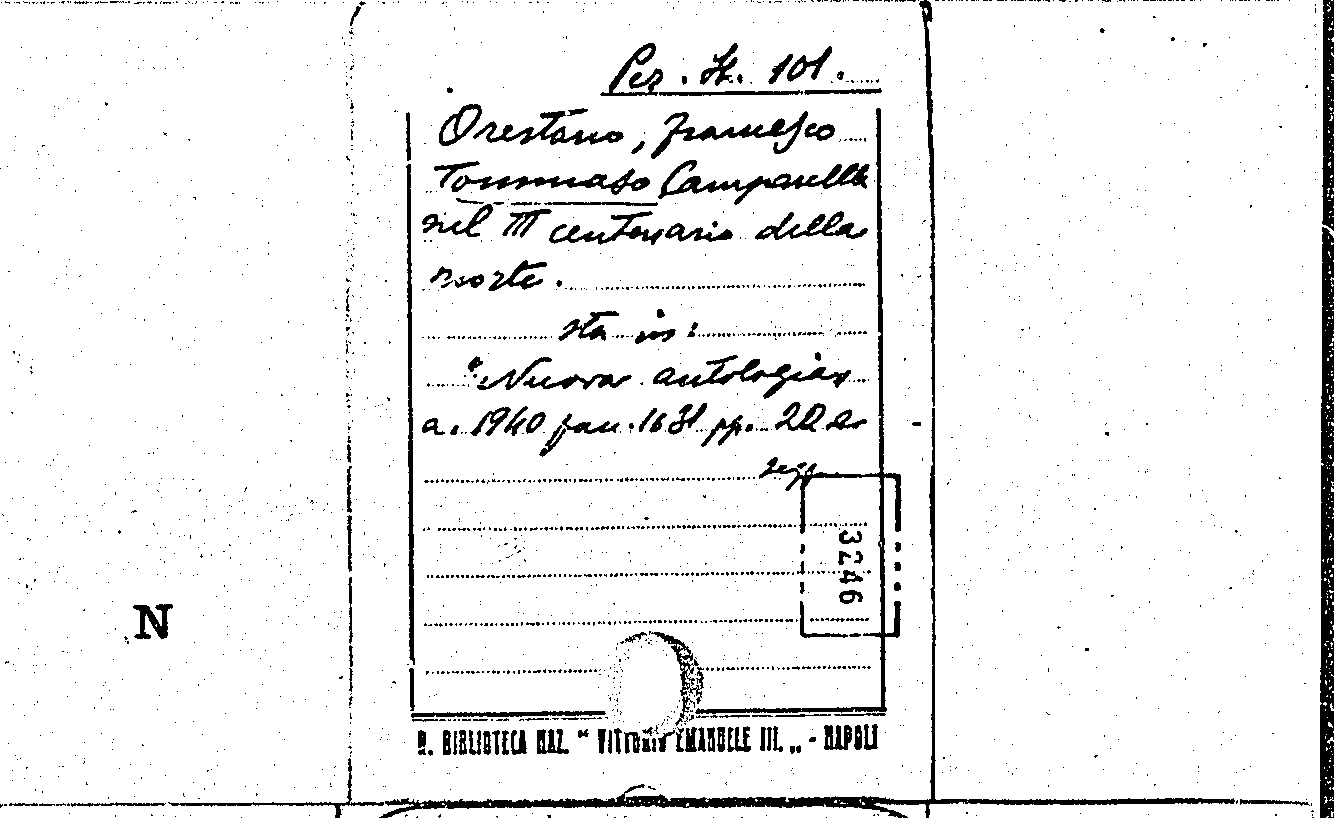 Per. It. 101.
Orestano, Francesco
Tommaso Campanella
nel III centenario della
morte.
sta in:
"Nuova antologia"
a. 1940 fasc. 1631 pp. 20 e
segg.
3246
N
R. BIBLIOTECA NAZ. "VITTORIO EMANUELE III." - NAPOLI